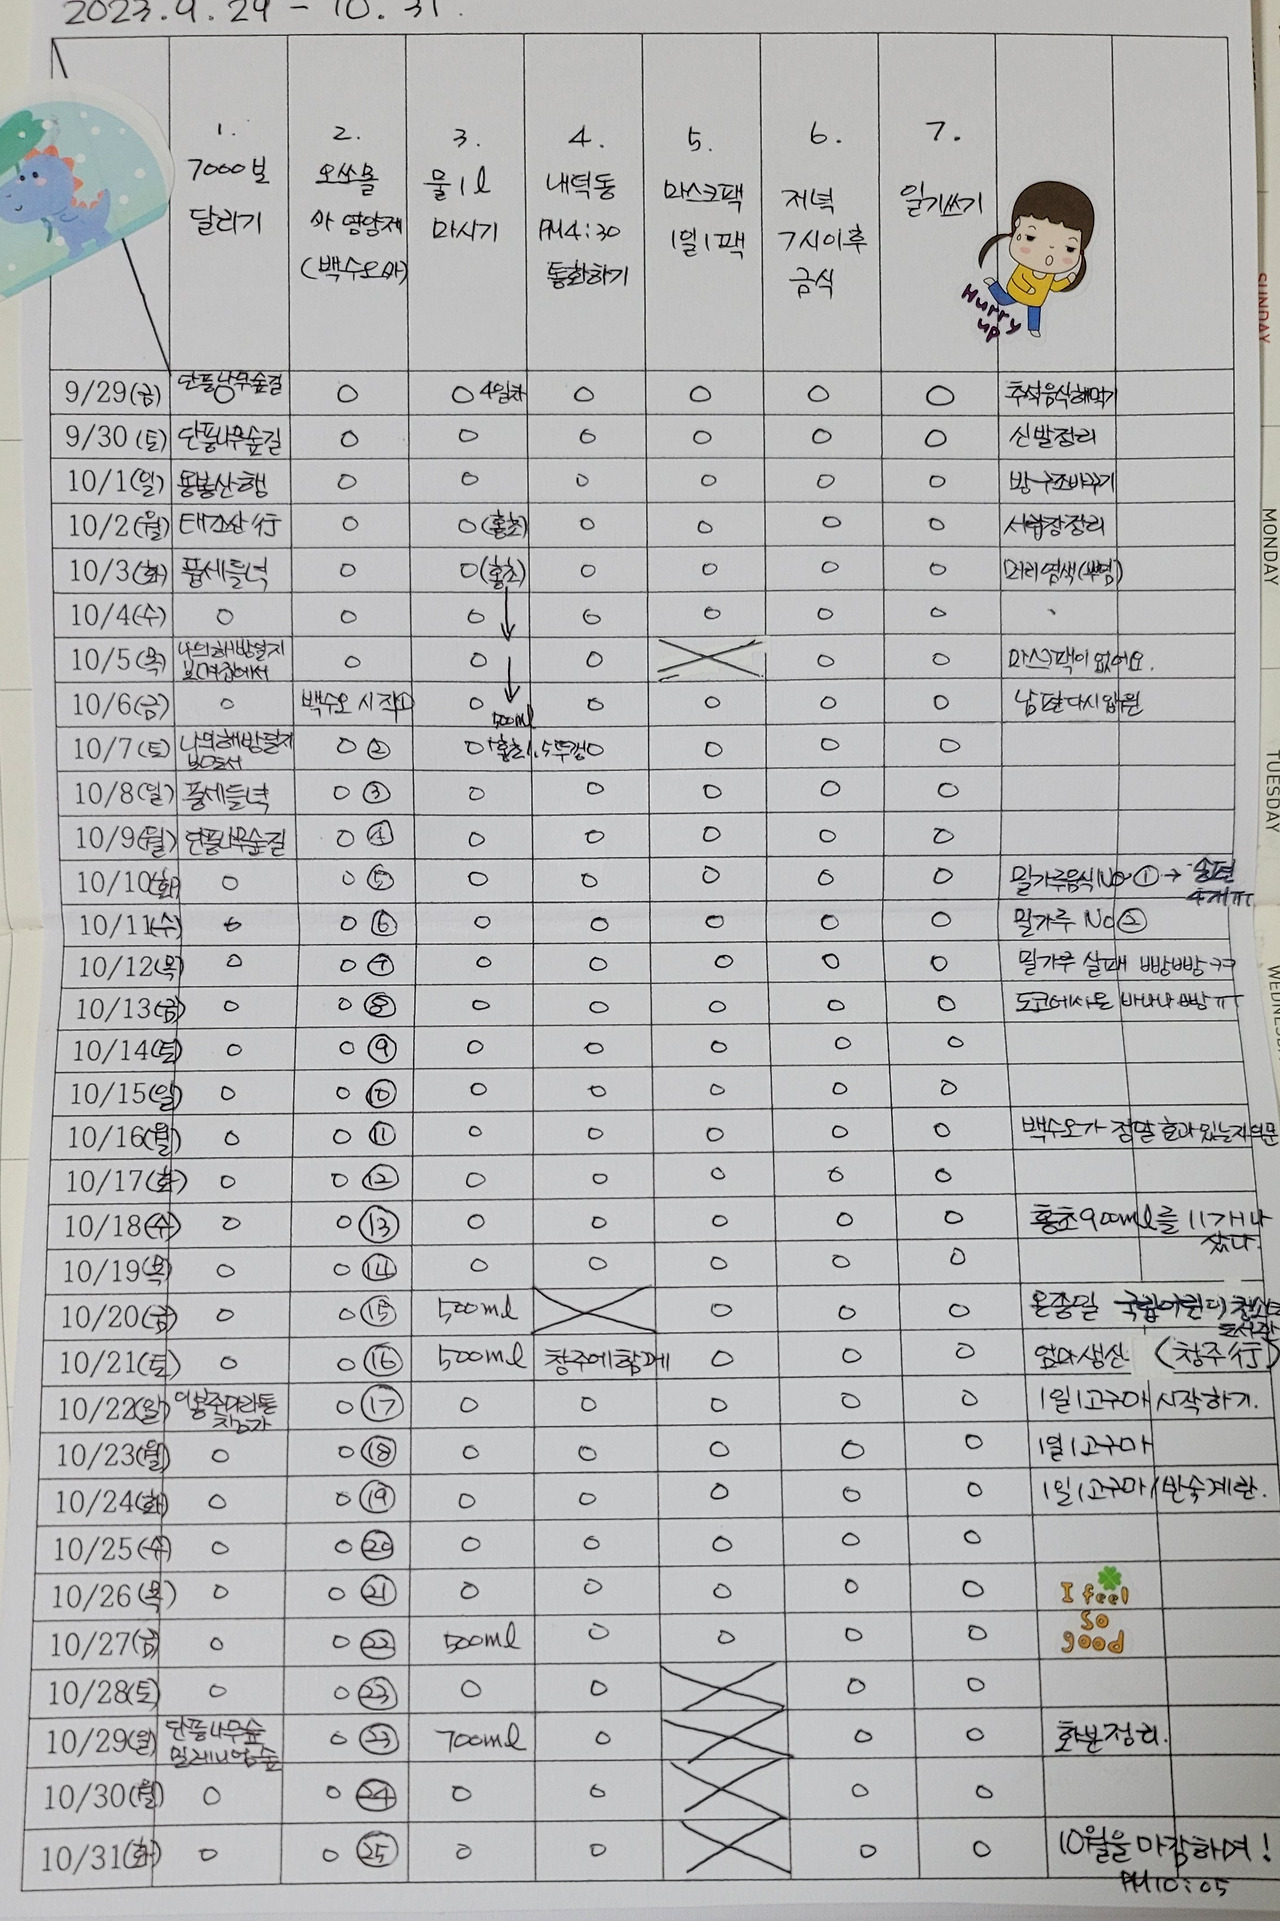 2023.9.29 - 10.31.
1. 2. 3. 4. 5. 6. 7.
7000보 달리기
오쏘몰 와 영양제 (백수오와)
물 1l 마시기
내덕동 PM 4:30 통화하기
마스크팩 1일 1팩
저녁 7시이후 금식
일기쓰기
Hurry up
9/29(금) 단풍나무숲길 O O O 4일차 O O O O 추석음식해먹기
9/30(토) 단풍나무숲길 O O O O O O 신발정리
10/1(일) 동봉산행 O O O O O O 방구조바꾸기
10/2(월) 태조산行 O O(홍초) O O O O 서랍장정리
10/3(화) 풍세들녘 O O(홍초) O O O O 머리염색(뿌염)
10/4(수) O O O O O O O
10/5(목) 나의해방일지 보며집에서 O O O O O 마스크팩이 없어요.
10/6(금) O 백수오 시작① O O O O O 남편다시입원
500ml
10/7(토) 나의해방일지 보면서 O② O+홍초1.5뚜껑 O O O O
10/8(일) 풍세들녘 O③ O O O O O
10/9(월) 단풍나무숲길 O④ O O O O O
10/10(화) O O⑤ O O O O O 밀가루음식No ① → 송편 4개ㅠㅠ
10/11(수) O O⑥ O O O O O 밀가루 No②
10/12(목) O O⑦ O O O O O 밀가루 실패 빵빵ㅋㅋ
10/13(금) O O⑧ O O O O O 도쿄에서온 바나나빵ㅠㅠ
10/14(토) O O⑨ O O O O O
10/15(일) O O⑩ O O O O O
10/16(월) O O⑪ O O O O O 백수오가 정말 효과있는지의문
10/17(화) O O⑫ O O O O O
10/18(수) O O⑬ O O O O O 홍초900ml를 11개나 샀다.
10/19(목) O O⑭ O O O O O
10/20(금) O O⑮ 500ml O O O 온종일 국립어린이청소년도서관
10/21(토) O O⑯ 500ml 청주에함께 O O O 엄마생신 (청주行)
10/22(일) 이봉주마라톤 참가 O⑰ O O O O O 1일1고구마 시작하기.
10/23(월) O O⑱ O O O O O 1일1고구마
10/24(화) O O⑲ O O O O O 1일1고구마/반숙계란.
10/25(수) O O⑳ O O O O O
10/26(목) O O㉑ O O O O O I feel
10/27(금) O O㉒ 500ml O O O O so good
10/28(토) O O㉓ O O O O
10/29(일) 단풍나무숲 밀레니엄숲 O㉓ 700ml O O O 화분정리.
10/30(월) O O㉔ O O O O
10/31(화) O O㉕ O O O O 10월을 마감하며!
PM 10:05
SUNDAY
MONDAY
TUESDAY